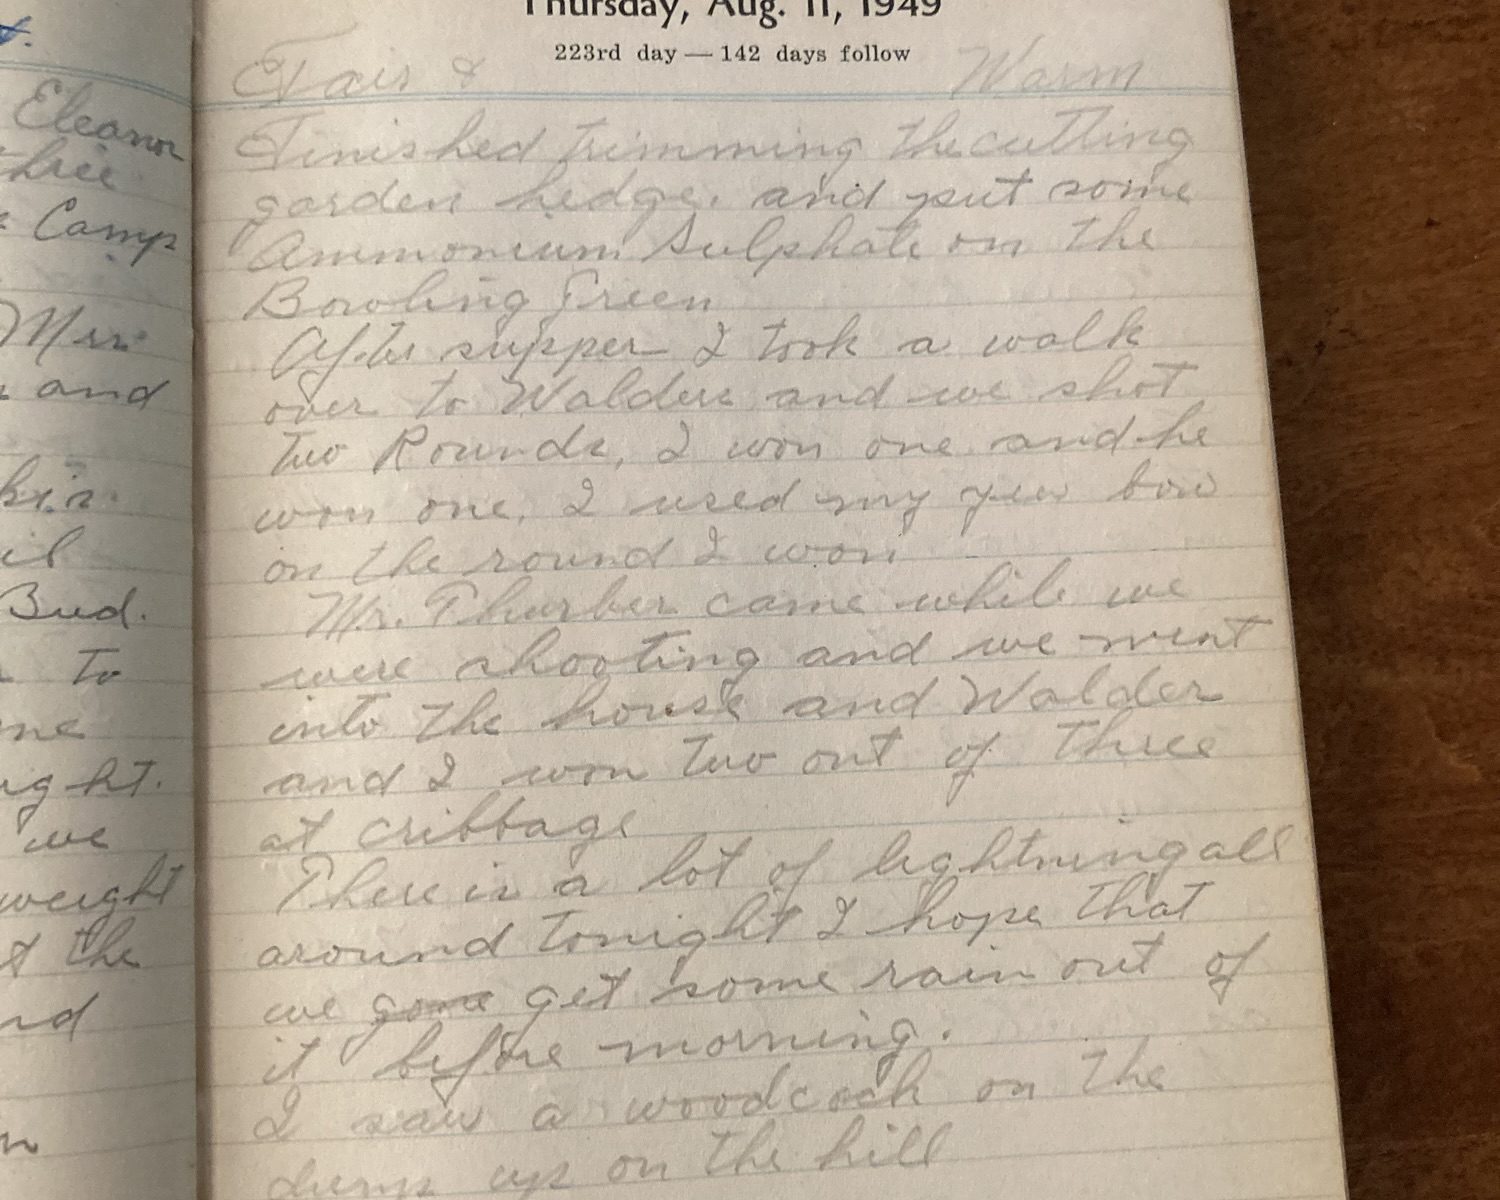 t.
Eleanor
three
Camp
Mrs.
and
il
Bud.
to
me
ight.
we
weight
t the
nd
n
Thursday, Aug. 11, 1949
223rd day — 142 days follow
Fair & Warm
Finished trimming the cutting
garden hedge, and put some
Ammonium Sulphate on the
Bowling Green
After supper I took a walk
over to Walders and we shot
two Rounds, I won one and he
won one, I used my yew bow
on the round I won
Mr. Thurber came while we
were shooting and we went
into the house and Walder
and I won two out of three
at cribbage
There is a lot of lightning all
around tonight I hope that
we gone get some rain out of
it before morning.
I saw a woodcock on the
dump up on the hill